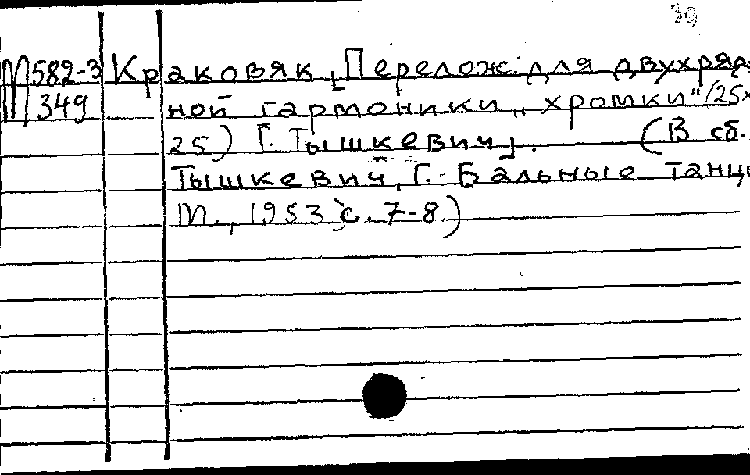 39
М582-3 Краковяк [Перелож. для двухряд-
М349 ной гармоники „хромки" /25×
25) Г. Тышкевич]. (В сб.
Тышкевич, Г. Бальные танцы
М., 1953 с. 7-8.)